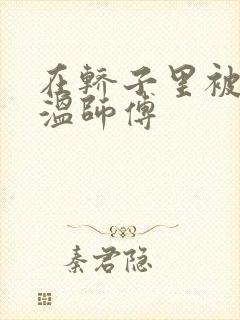 在轿子里被
温師傅
秦君隐